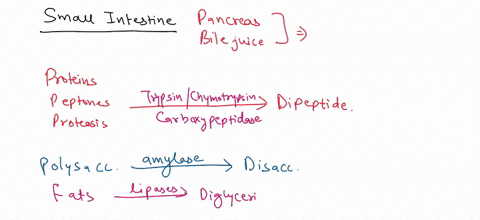 Small Intestine Pancreas
Bile juice ] ⇒
Proteins
Peptones Trypsin/Chymotrypsin → Dipeptide.
Proteosis Carboxypeptidase
Polysacc. amylase → Disacc.
Fats lipases → Diglyceri